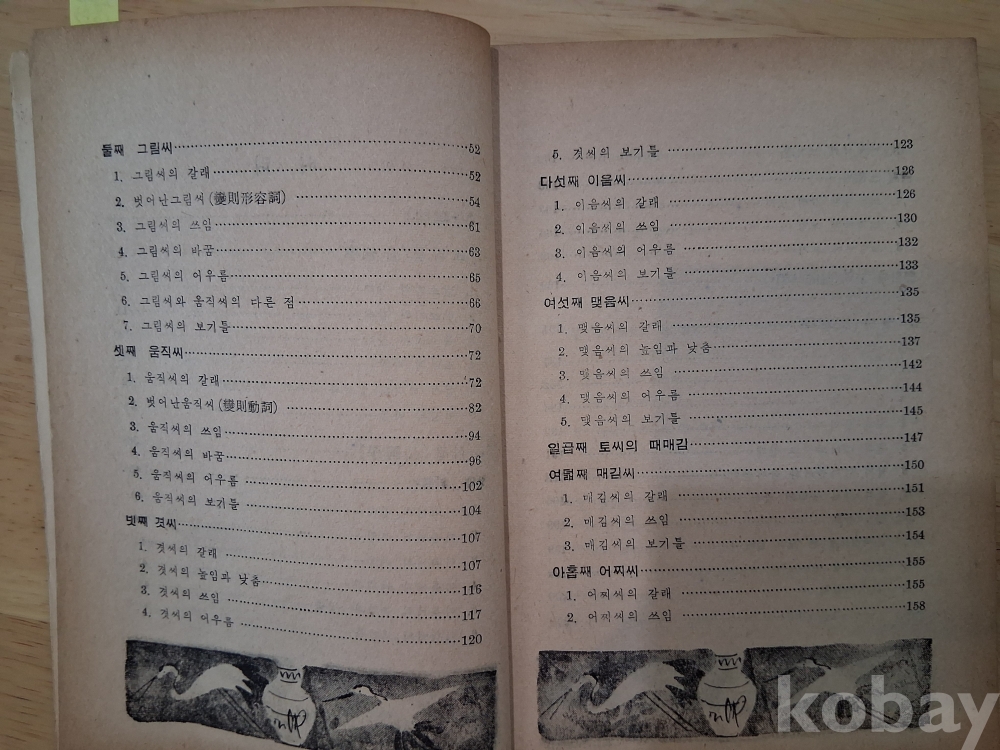 둘째 그림씨……52
1. 그림씨의 갈래……52
2. 벗어난그림씨(變則形容詞)……54
3. 그림씨의 쓰임……61
4. 그림씨의 바꿈……63
5. 그림씨의 어우름……65
6. 그림씨와 움직씨의 다른 점……66
7. 그림씨의 보기틀……70
셋째 움직씨……72
1. 움직씨의 갈래……72
2. 벗어난움직씨(變則動詞)……82
3. 움직씨의 쓰임……94
4. 움직씨의 바꿈……96
5. 움직씨의 어우름……102
6. 움직씨의 보기틀……104
넷째 겻씨……107
1. 겻씨의 갈래……107
2. 겻씨의 높임과 낮춤……116
3. 겻씨의 쓰임……117
4. 겻씨의 어우름……120
5. 겻씨의 보기틀……123
다섯째 이음씨……126
1. 이음씨의 갈래……126
2. 이음씨의 쓰임……130
3. 이음씨의 어우름……132
4. 이음씨의 보기틀……133
여섯째 맺음씨……135
1. 맺음씨의 갈래……135
2. 맺음씨의 높임과 낮춤……137
3. 맺음씨의 쓰임……142
4. 맺음씨의 어우름……144
5. 맺음씨의 보기틀……145
일곱째 토씨의 때매김……147
여덟째 매김씨……150
1. 매김씨의 갈래……151
2. 매김씨의 쓰임……153
3. 매김씨의 보기틀……154
아홉째 어찌씨……155
1. 어찌씨의 갈래……155
2. 어찌씨의 쓰임……158
kobay